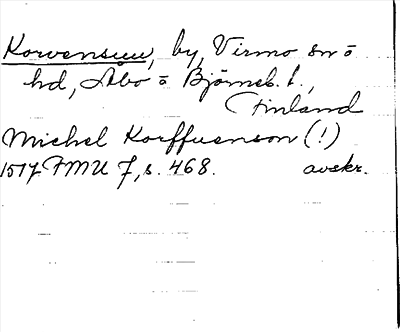 Korvensuu, by, Virmo sn o
hd, Åbo o Björneb. l.,
Finland
Michel Korffuenson (!)
1517 FMU 7, s. 468. avskr.